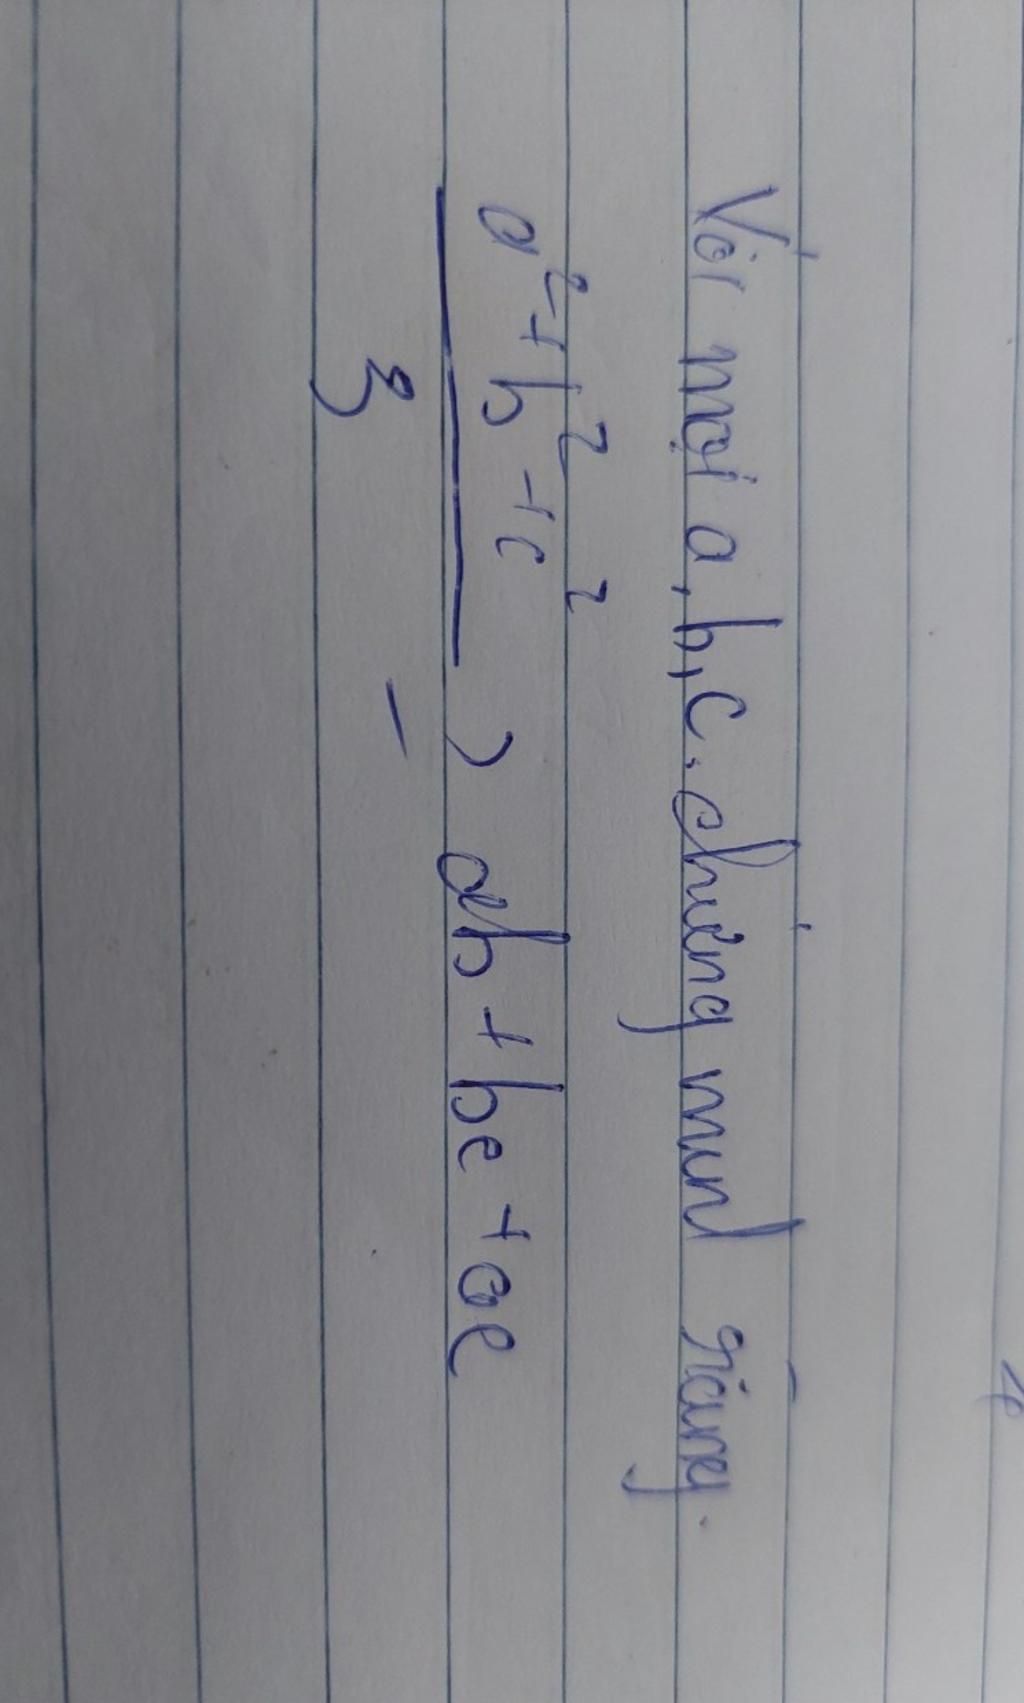 Với mọi a, b, c. chứng minh rằng.
a² + b² + c² / 3 ≥ ab + bc + ac